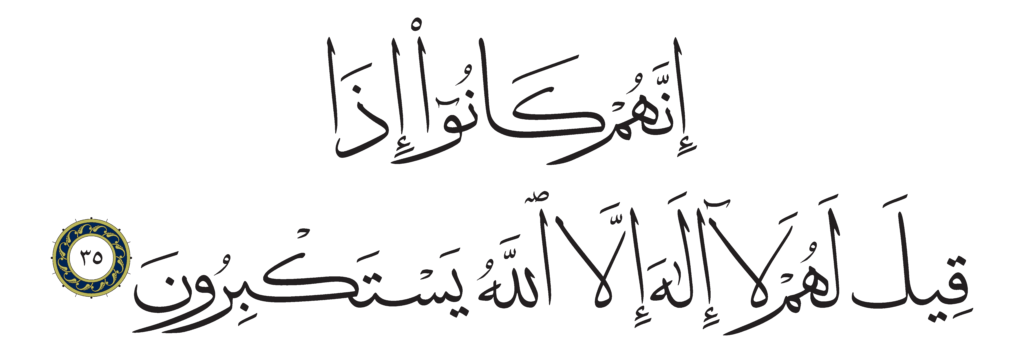 إِنَّهُمْ كَانُوٓا۟ إِذَا
قِيلَ لَهُمْ لَآ إِلَٰهَ إِلَّا ٱللَّهُ يَسْتَكْبِرُونَ ٣٥